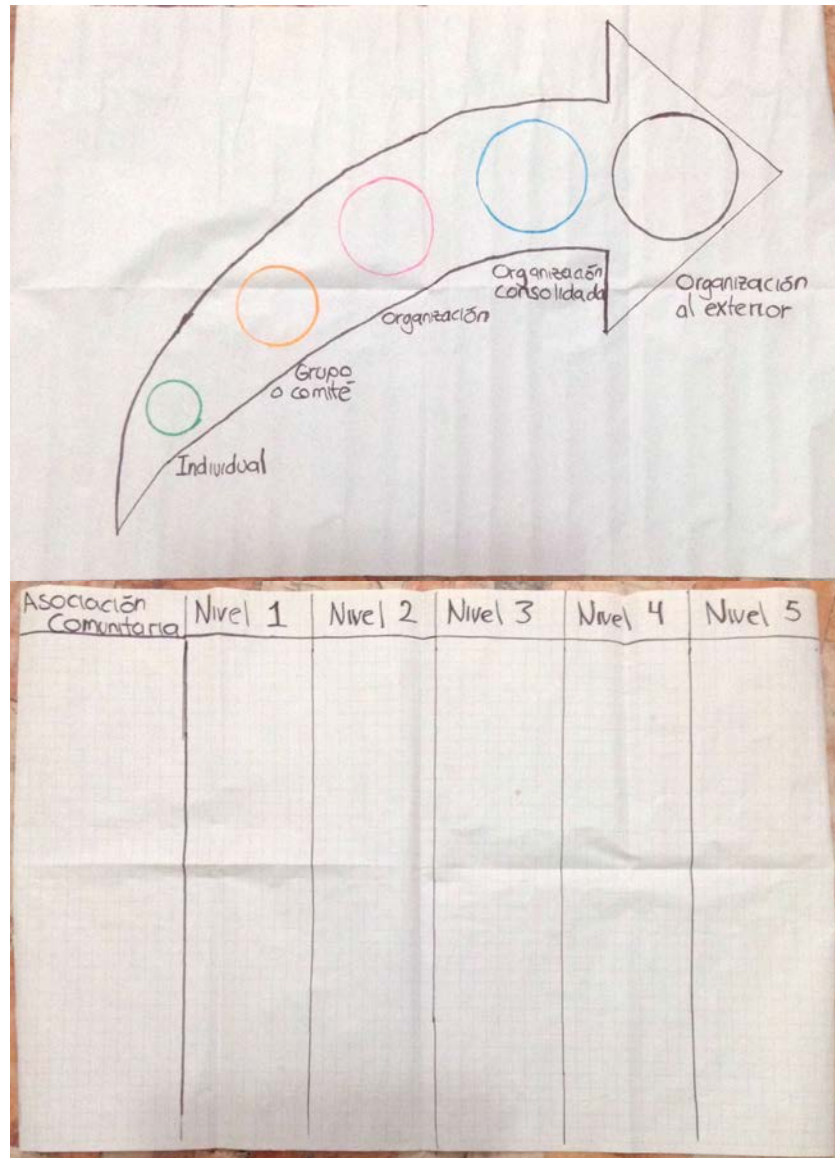 Individual
Grupo
o comité
Organización
Organización
consolidada
Organización
al exterior
Asociación
Comunitaria
Nivel 1
Nivel 2
Nivel 3
Nivel 4
Nivel 5